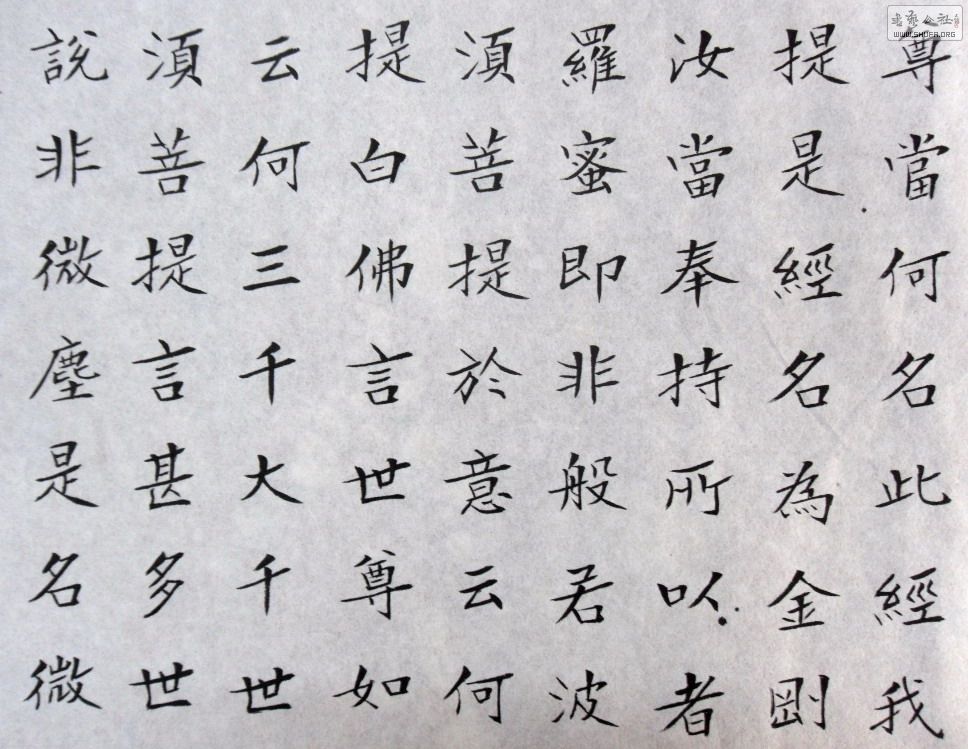 尊當何名此經我
提是經名為金剛
汝當奉持所以者
羅蜜即非般若波
須菩提於意云何
提白佛言世尊如
云何三千大千世
須菩提言甚多世
說非微塵是名微
WWW.SHUFA.ORG